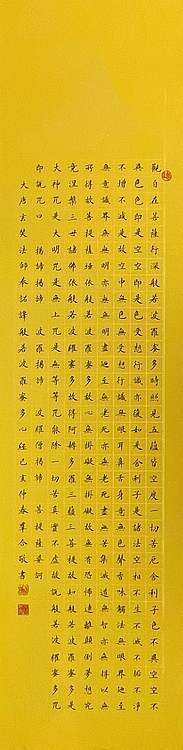 觀自在菩薩行深般若波羅蜜多時照見五蘊皆空度一切苦厄舍利子色不異空空不
異色色即是空空即是色受想行識亦復如是舍利子是諸法空相不生不滅不垢不淨
不增不減是故空中無色無受想行識無眼耳鼻舌身意無色聲香味觸法無眼界乃至
無意識界無無明亦無無明盡乃至無老死亦無老死盡無苦集滅道無智亦無得以無
所得故菩提薩埵依般若波羅蜜多故心無掛礙無掛礙故無有恐怖遠離顛倒夢想究
竟涅槃三世諸佛依般若波羅蜜多故得阿耨多羅三藐三菩提故知般若波羅蜜多是
大神咒是大明咒是無上咒是無等等咒能除一切苦真實不虛故說般若波羅蜜多咒
即說咒曰 揭諦揭諦 波羅揭諦 波羅僧揭諦 菩提薩婆訶
大唐玄奘法師奉詔譯般若波羅蜜多心經己亥仲春敬書